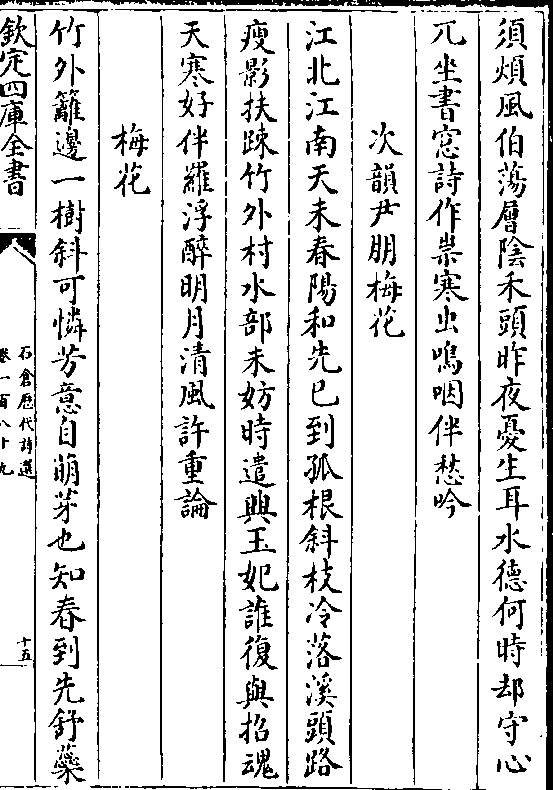 須煩風伯蕩層陰禾頭昨夜憂生耳水德何時却守心
兀坐書窓詩作祟寒虫鳴咽伴愁吟
次韻尹朋梅花
江北江南天未春陽和先已到孤根斜枝冷落溪頭路
瘦影扶踈竹外村水部未妨時遣興玉妃誰復與招魂
天寒好伴羅浮醉明月清風許重論
梅花
竹外籬邊一樹斜可憐芳意自萌芽也知春到先舒蘂
欽定四庫全書
石倉歷代詩選
卷一百八十九
十五